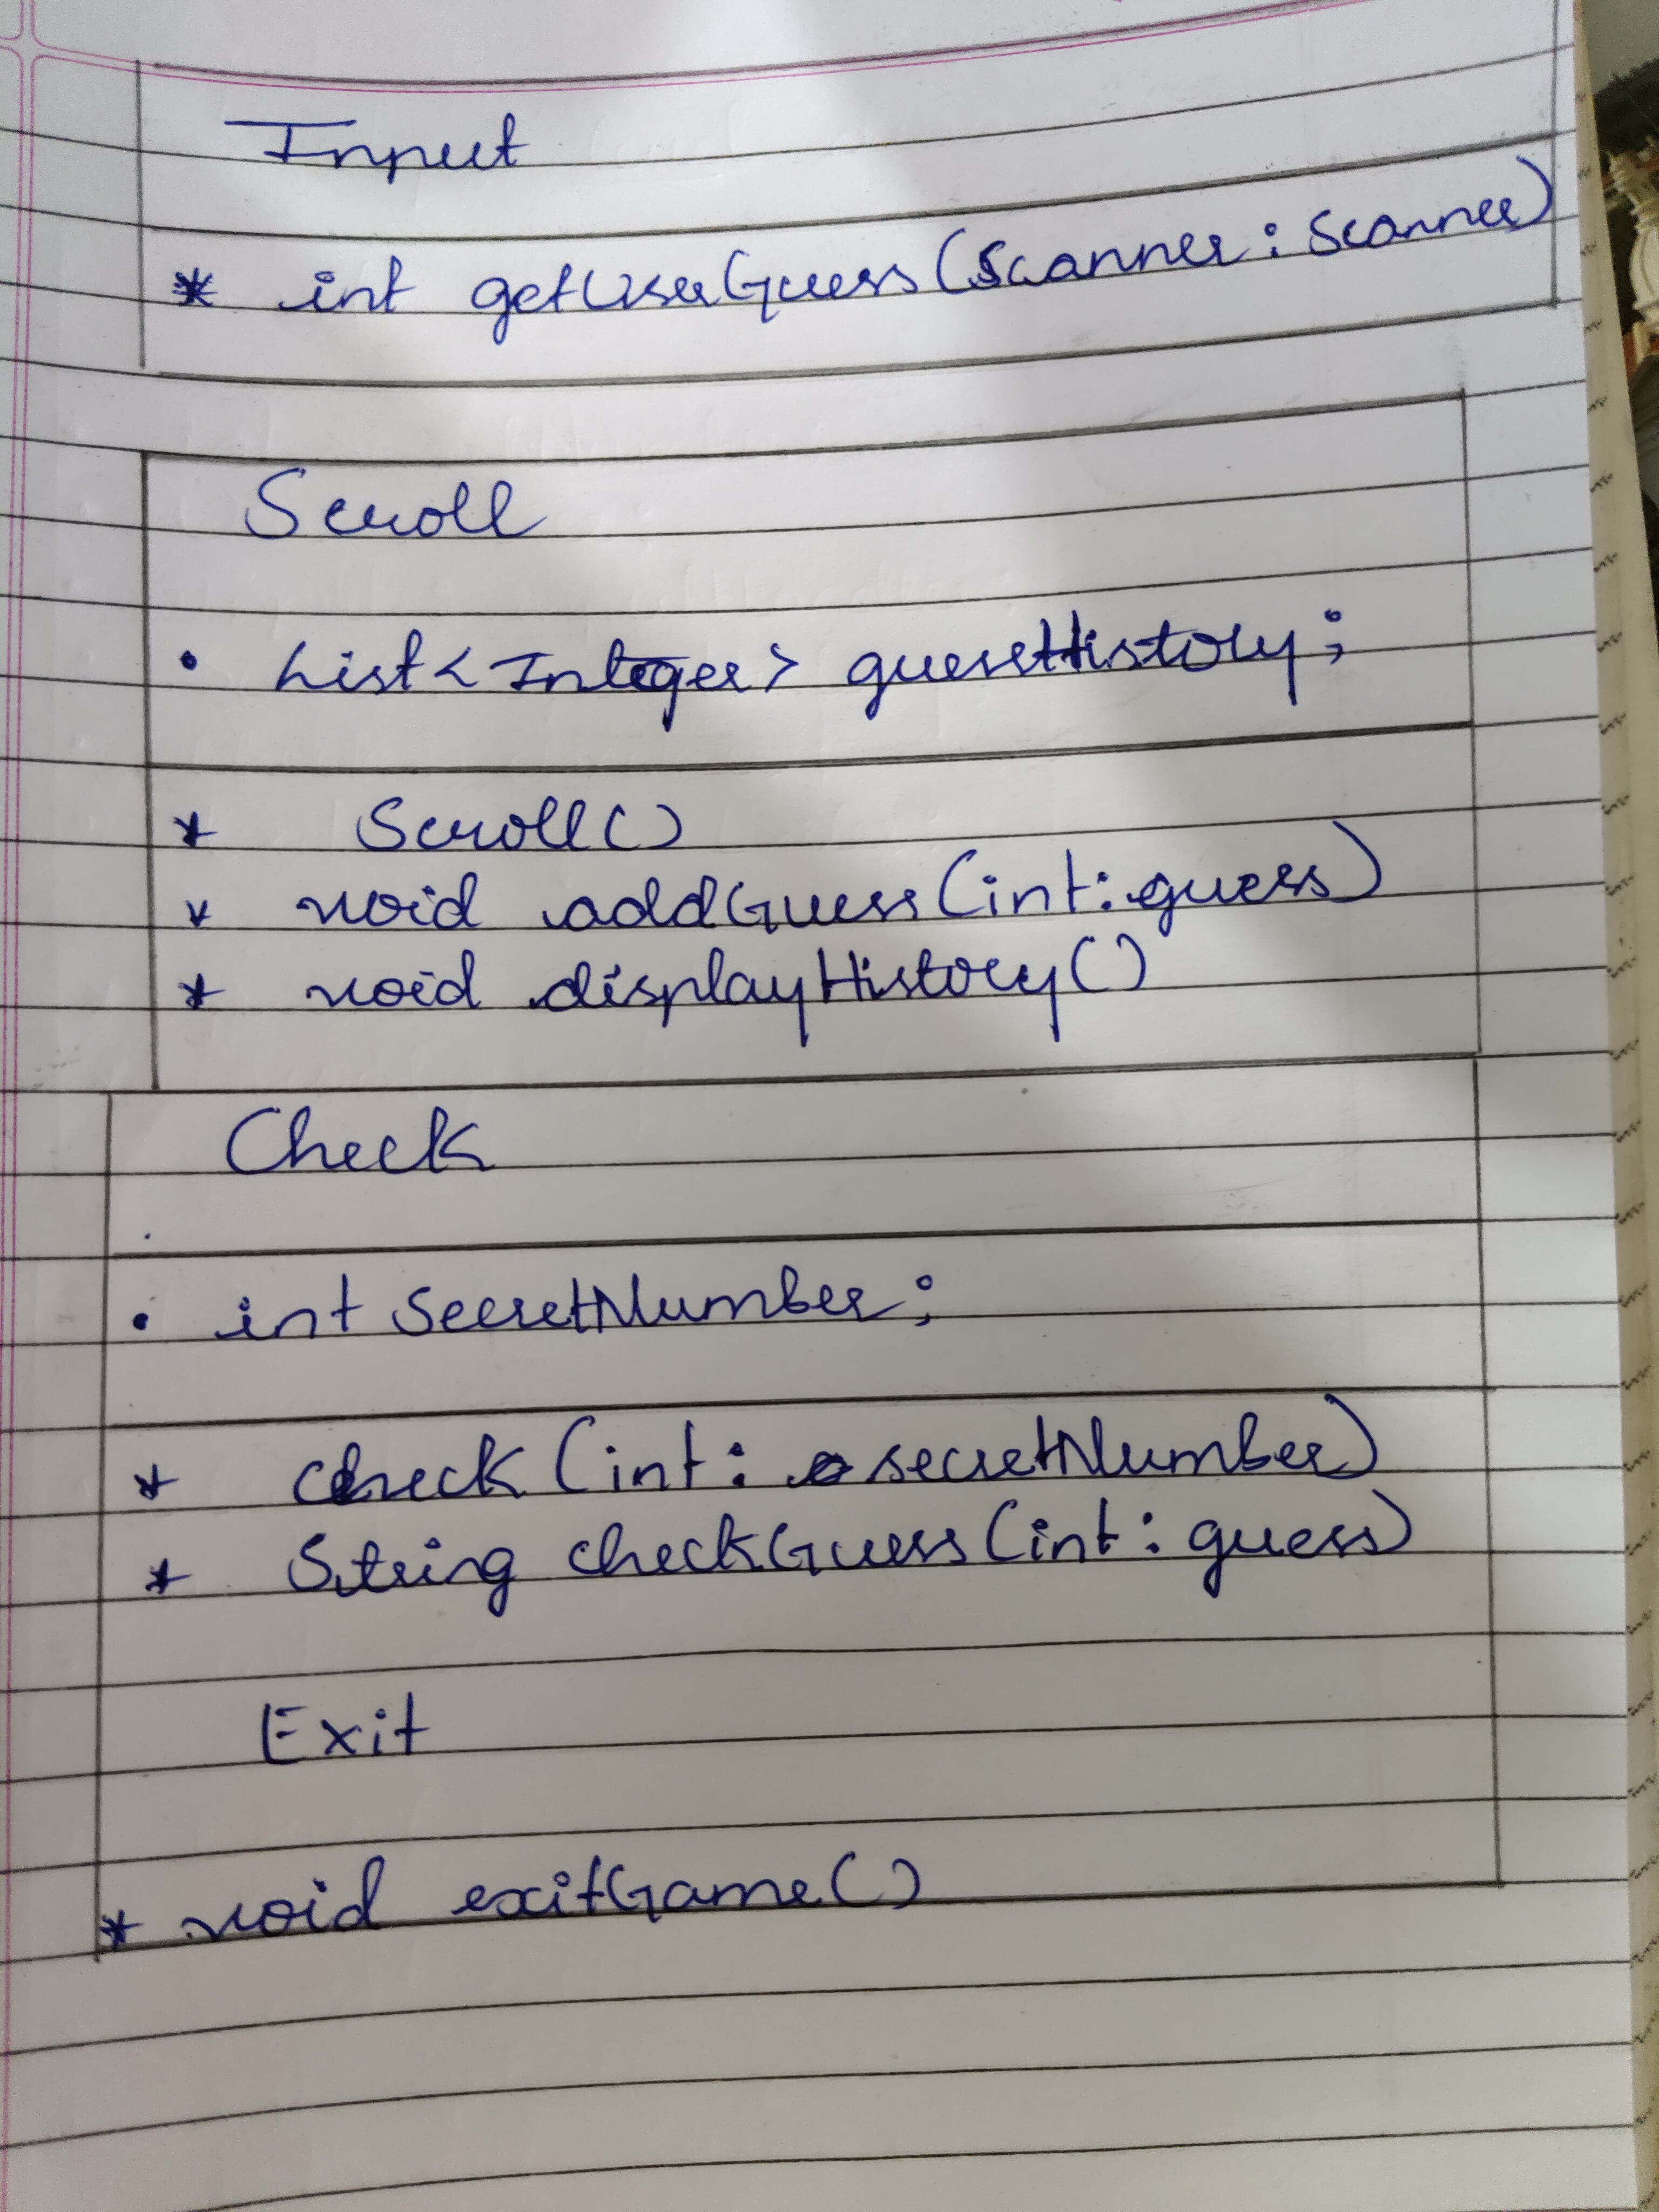 Input
* int getUserGuess(Scanner : Scanner)
Scroll
• List<Integer> guessHistory;
* Scroll()
* void addGuess(int: guess)
* void displayHistory()
Check
• int SecretNumber;
* check (int: secretNumber)
* String checkGuess(int: guess)
Exit
* void exitGame()